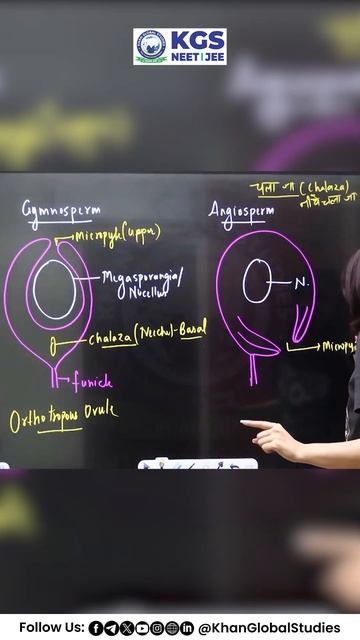 KGS
NEET | JEE
चला जा (Chalaza)
नीचे चला जा
Gymnosperm
Angiosperm
Micropyle (Upper)
Megasporangia/
Nucellus
N.
chalaza (Neeche)-Basal
Micropy
funicle
Orthotropous Ovule
Follow Us: @KhanGlobalStudies